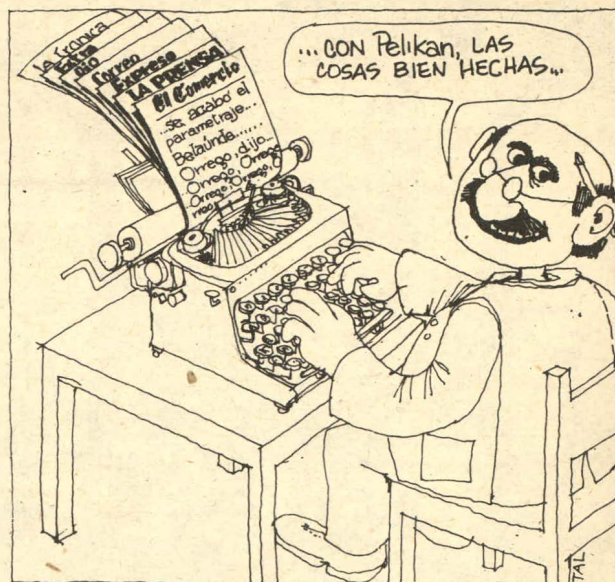 ... CON Pelikan, LAS
COSAS BIEN HECHAS...
La Cronica
Extra
Ojo
Correo
Expreso
LA PRENSA
El Comercio
...Se acabó el
parametraje...
Belaúnde......
Orrego, dijo...
Orrego, Orrego
Orrego, Orrego,
rrego
TAL